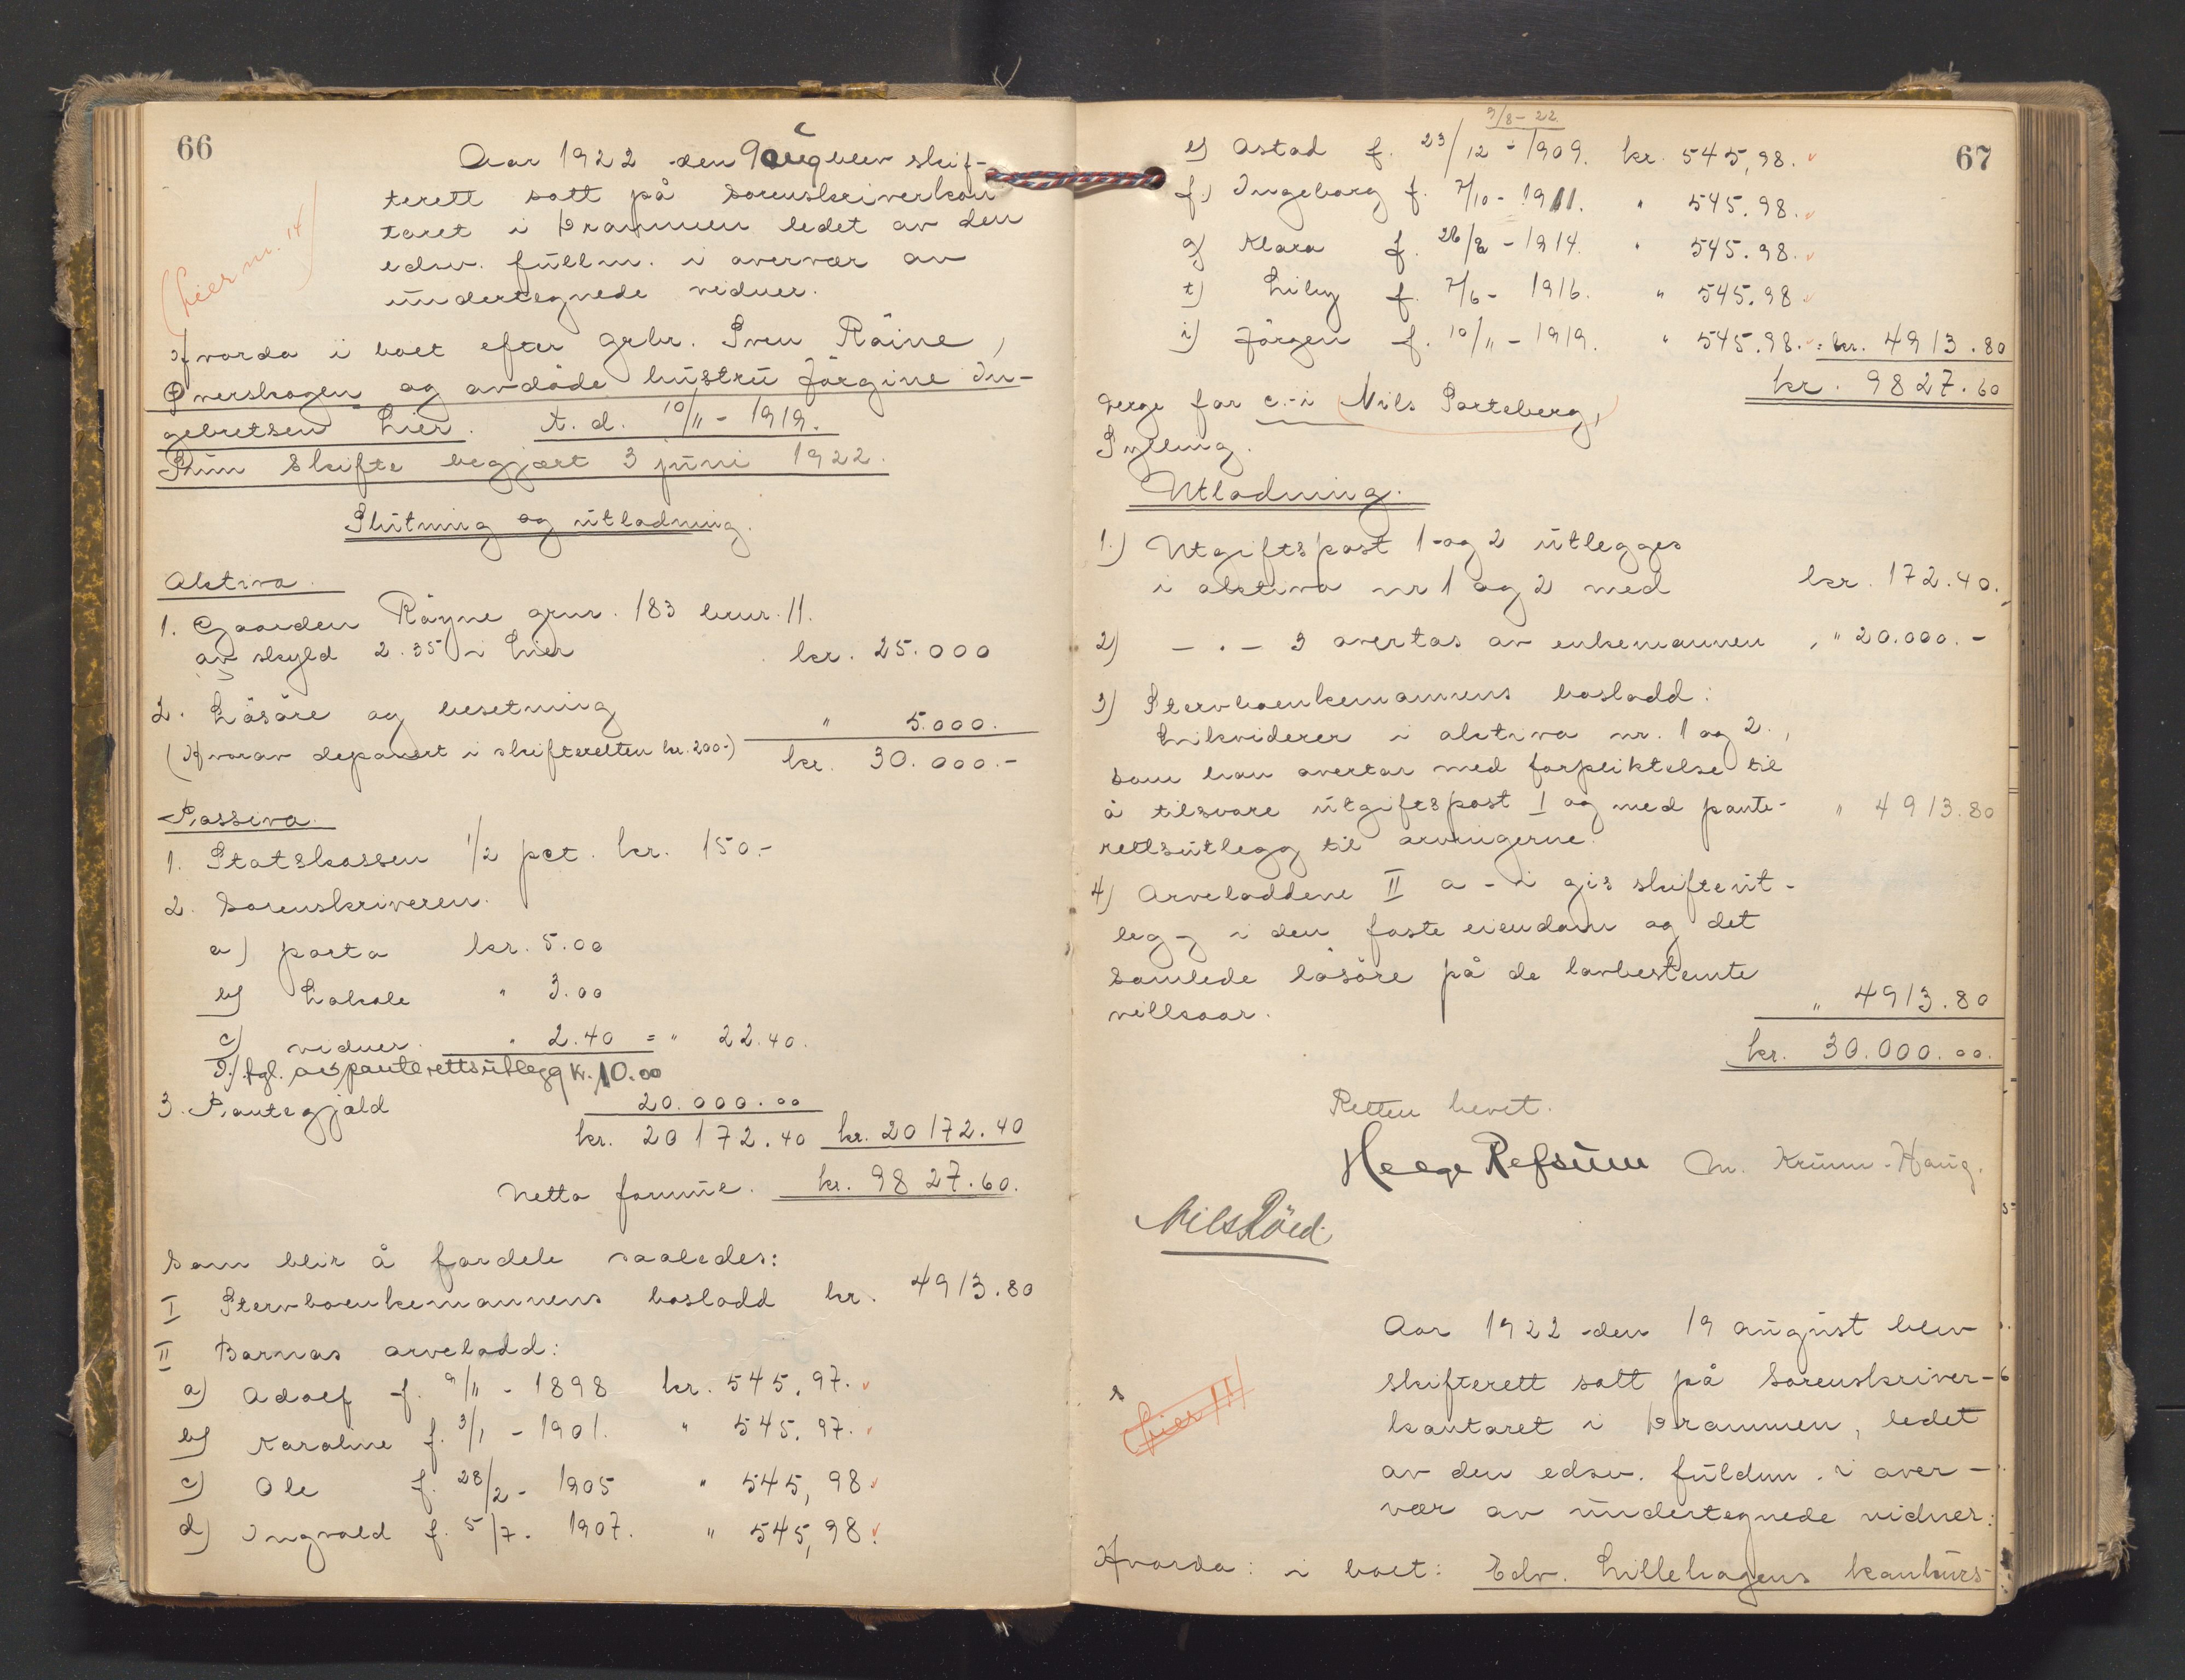 66
Aar 1922 den 9 aug blev skif-
terett satt på sorenskriverkon
toret i Drammen ledet av den
edsv. fullm. i overvær av
undertegnede vidner.
(Lier nr. 14)
Hvorda i boet efter gbr. Sven Råine,
Overskogen og avdöde hustru Jörgine In-
gebretsen Lier. t. d. 10/11 - 1919.
Prim Skifte begjært 3 juni 1922.
Slutning og utlodning.
Aktiva.
1. Gaarden Råyne grnr. 183 brnr. 11.
av skyld 2.35 i Lier kr. 25.000
2. Lösöre og besetning " 5.000.
(Hvorav deponert i skifteretten kr. 200-) kr. 30.000.-
Passiva.
1. Statskassen 1/2 pct. kr. 150.-
2. Sorenskriveren.
a) porto kr. 5.00
b) Lokale " 3.00
c) vidner. " 2.40 = " 22.40.
D./. tgl. av panterettsutlegg Kr. 10.00
3. Pantegjæld 20.000.00
kr. 20172.40 kr. 20172.40
Netto formue. kr. 9827.60.
Som blir å fordele saaledes:
I Stervboenkemannens boslodd kr. 4913.80
II Barnas arvelodd:
a) Adolf f. 9/11 - 1898 kr. 545.97.
b) Karoline f. 3/1 - 1901. " 545.97.
c) Ole f. 28/2 - 1905 " 545,98
d) Ingvald f. 5/7 - 1907. " 545,98.
9/8 - 22.
67
e) Astad f. 23/12 - 1909. kr. 545,98.
f.) Ingeborg f. 7/10 - 1911. " 545.98.
g) Klara f. 26/8 - 1914. " 545.98.
t) Lily f. 7/6 - 1916. " 545.98
i) Jörgen f. 10/11 - 1919. " 545.98. = kr. 4913.80
kr. 9827.60
Verge for c.-i Nils Sorteberg,
Sylling.
Utlodning.
1.) Utgiftspost 1 og 2 utlegges
i aktiva nr 1 og 2 med kr. 172.40.
2) - " - 3 overtas av enkemannen, " 20.000.-
3) Stervboenkemannens boslodd:
Likviderer i aktiva nr. 1 og 2.,
som han overtar med forpliktelse til
å tilsvare utgiftspost I og med pante- " 4913.80
rettsutlegg til arvingerne.
4) Arveloddene II a - i gis skifteut-
legg i den faste eiendom og det
samlede lösöre på de lovbestemte
villkaar. " 4913.80
kr. 30.000.00.
Retten hevet.
Helge Refsum M. Krumm-Haug.
Nils Röed
Aar 1922 den 19 august blev
skifterett satt på sorenskriver-
kontoret i Drammen, ledet
av den edsv. fuldm. i over-
vær av undertegnede vidner:
(Lier 11)
Hvorda: i boet: Edv. Lillehagens konkurs-